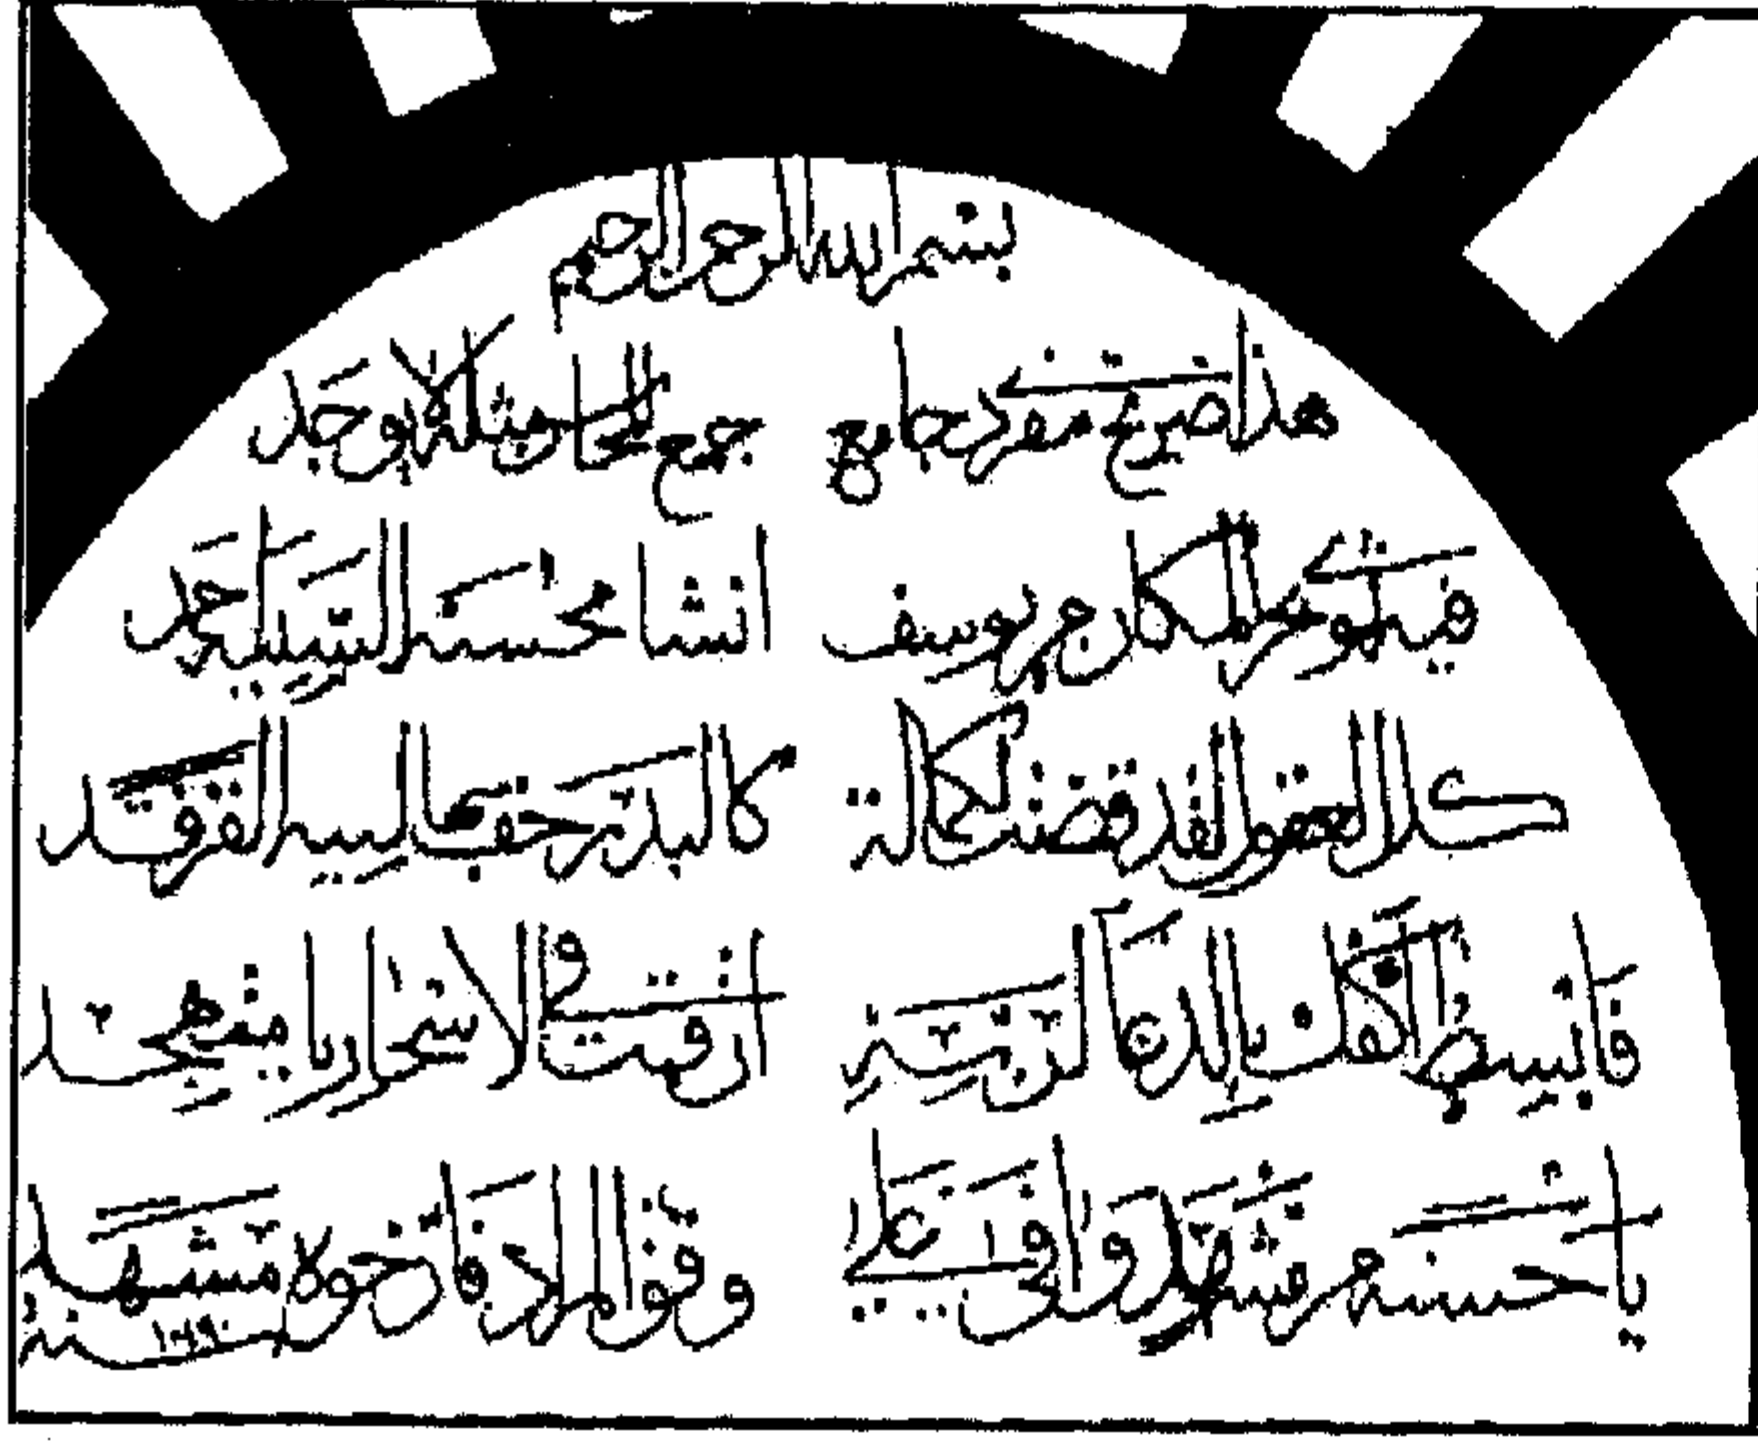 بسم الله الرحمن الرحيم
هذا ضريح مفرد جامع جميع المحاسن مثله لا يوجد
فيه المكارم يوسف انشا محسنه السيد احمد
كلا العقول لقد قضت بكماله كالبدر حف الفرقد
فابسط اكفك بالدعا لربه ان قمت في الاسحار يا متهجد
يا حسنه من مشهد وافى على وفق المراد فارخوه مشهد
سنة